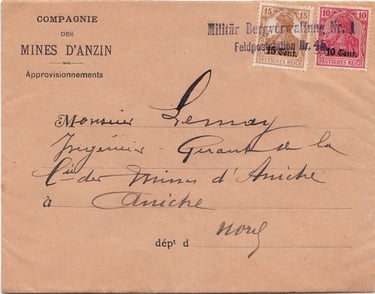 COMPAGNIE
DES
MINES D'ANZIN
Approvisionnements
15 15
DEUTSCHES REICH
15 Cent.
10 10
DEUTSCHES REICH
10 Cent.
Militär Bergverwaltung Nr. 1
Feldpoststation Nr.
Monsieur Lemay
Ingénieur - Gérant de la
Cie des Mines d'Aniche
à Aniche
dépt d Nord